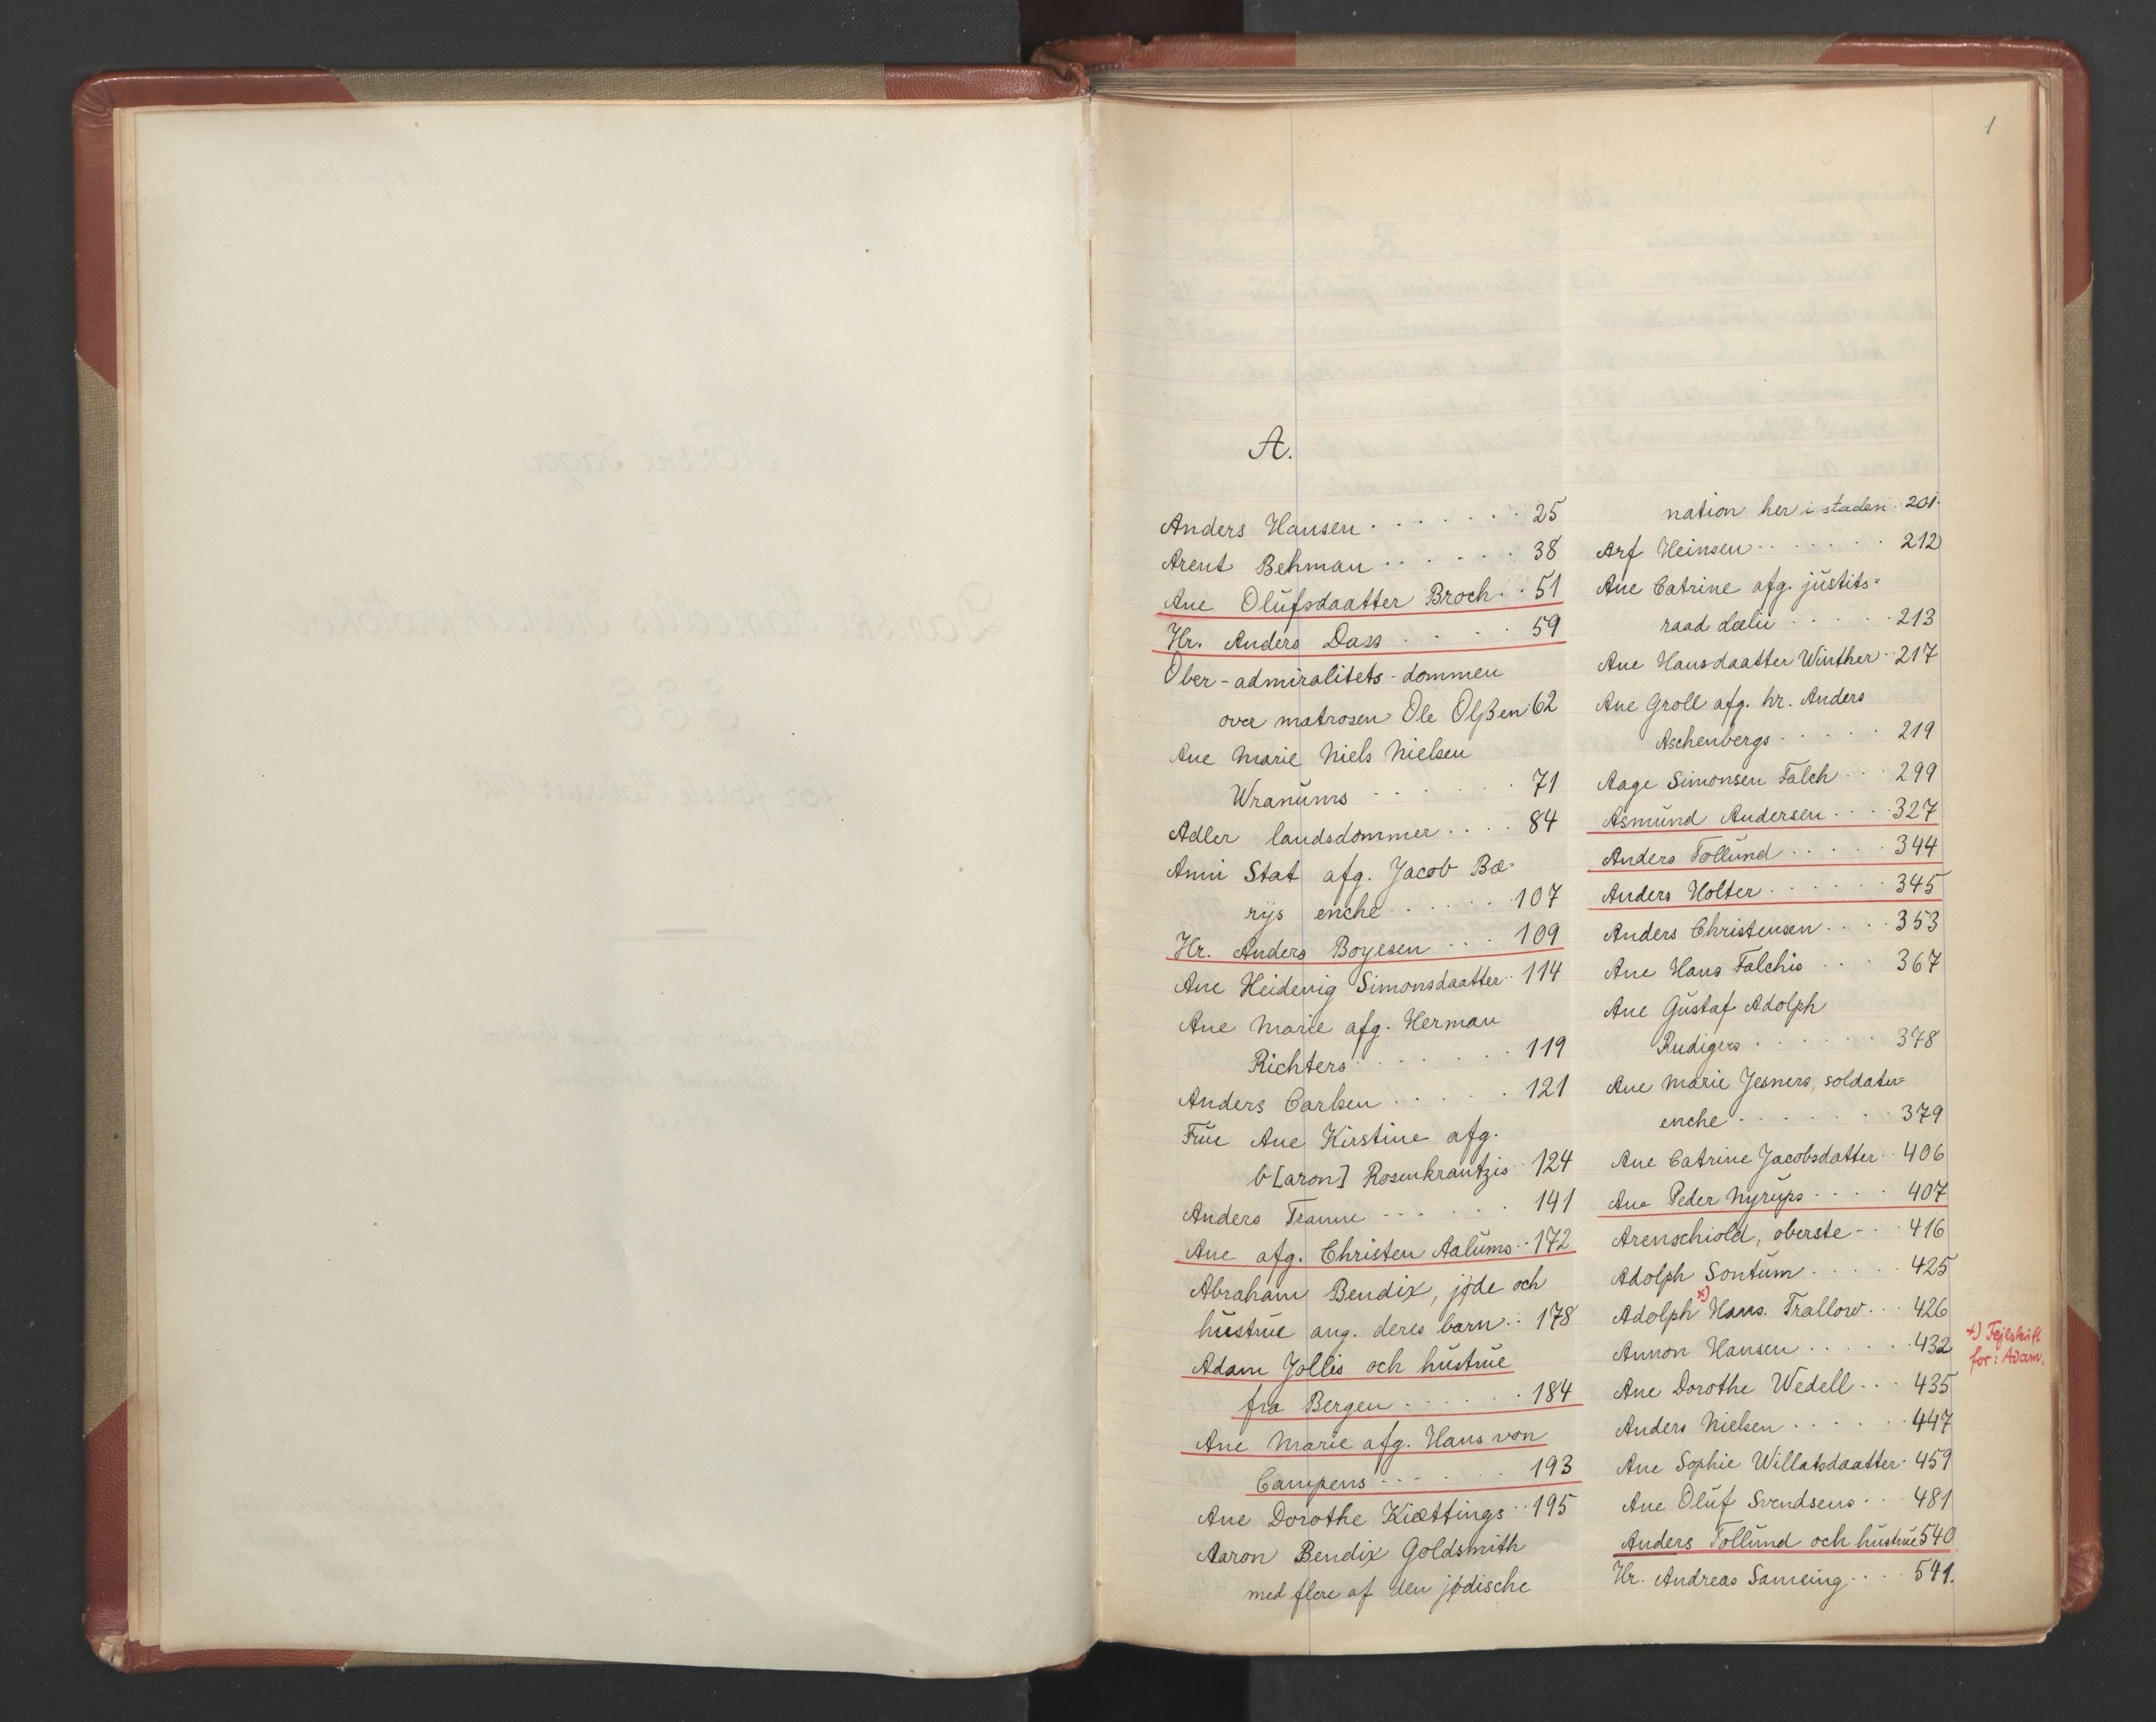 1
A.
Anders Hansen . . . . . . . 25
Arent Behman . . . . . . 38
Ane Olufsdaatter Broch . . 51
Hr. Anders Dass . . . . 59
Ober-admiralitets-dommen
over matrosen Ole Olßen 62
Ane Marie Niels Nielsen
Wranums . . . . . . 71
Adler landsdommer . . . . 84
Anni Stat afg. Jacob Bæ-
rijs enche . . . . . . 107
Hr. Anders Boyesen . . . 109
Ane Heidevig Simonsdaatter . . 114
Ane Marie afg. Herman
Richters . . . . . . . 119
Anders Carlsen . . . . . 121
Frue Ane Kirstine afg.
b[aron] Rosenkrantzis . . 124
Anders Tranne . . . . . . 141
Ane afg. Christen Aalums . . 172
Abraham Bendix, jøde och
hustrue ang. deres barn . . 178
Adam Jollis och hustrue
fra Bergen . . . . . . 184
Ane Marie afg. Hans von
Campens . . . . . . 193
Ane Dorothe Kiættings . . 195
Aaron Bendix Goldsmith
med flere af den jødische
nation her i staden . 201.
Arf Heinsen . . . . . . . 212
Ane Catrine afg. justits=
raad Lælii . . . . . . 213
Ane Hansdaatter Winther . . 217
Ane Groll afg. hr. Anders
Aschenbergs . . . . . 219
Aage Simonsen Falch . . . 299
Asmund Andersen . . . . 327
Anders Tollund . . . . . 344
Anders Holter . . . . . . 345
Anders Christensen . . . . 353
Ane Hans Falchis . . . 367
Ane Gustaf Adolph
Rudigers . . . . . . 378
Ane Marie Jesners, soldater=
enche . . . . . . . 379
Ane Catrine Jacobsdatter . . 406
Ane Peder Nyrups . . . . 407
Arenschiold, oberste . . . 416
Adolph Sontum . . . . . 425
Adolph x) Hans. Trallow . . . 426
x) Fejlskrift
for: Adam.
Annon Hansen . . . . . . 432
Ane Dorothe Wedell . . . 435
Anders Nielsen . . . . . . 447
Ane Sophie Willatsdaatter . 459
Ane Oluf Svendsens . . . 481
Anders Tollund och hustrue 540
Hr. Andreas Samsing . . . . 541.